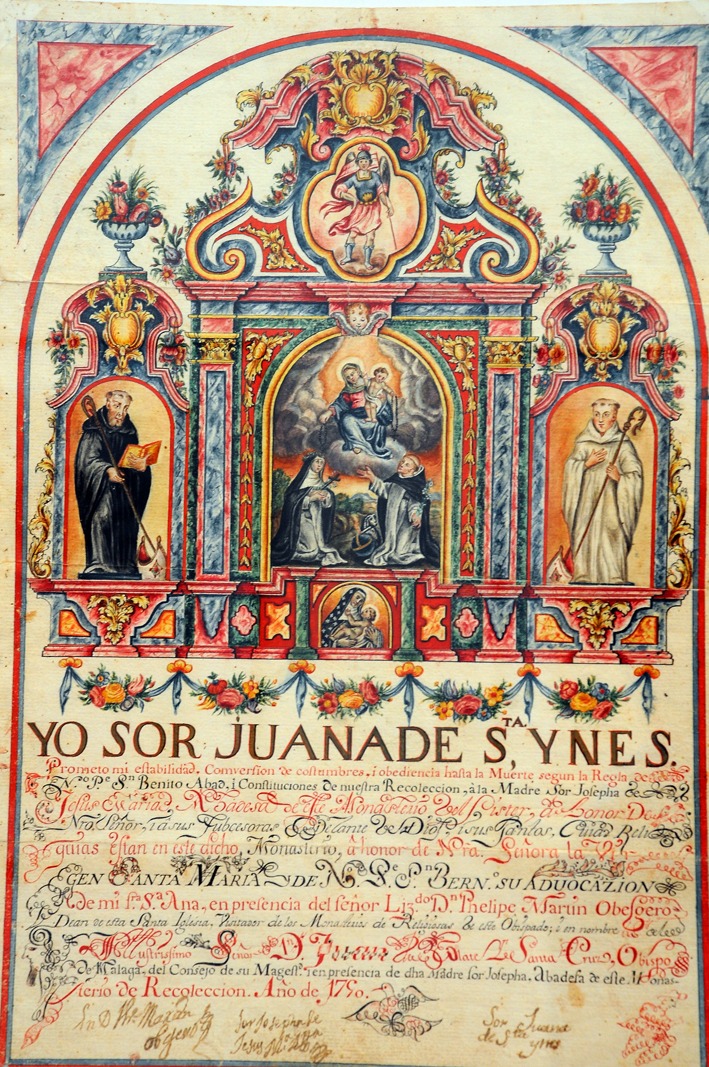 YO SOR JUANA DE S.TA YNES.
Prometo mi estabilidad, Conversion de costumbres, i obediencia hasta la Muerte segun la Regla de
N.ro P.e S.n Benito Abad, i Constituciones de nuestra Recoleccion, a la Madre Sor Josepha de
Jesus Maria, Abadesa de este Monasterio del Cister, a Honor De
Nro. Señor, i a sus Subcesoras Delante de Dios i sus Santos, Cuias Reli
quias estan en este dicho, Monasterio, a honor de Nra. Señora la Vir
GEN SANTA MARIA, DE N.o P.e S.n BERN.o SU ADUOCAZION
de mi S.ra S.ta Ana, en presencia del señor Liz.do D.n Phelipe Martin Obegero
Dean de esta Santa Iglesia, Visitador de los Monasterios de Religiosas de este Obispado; i en nombre de
Illustrisimo Señor D. Juan de Santa Cruz, Obispo
de Malaga, del Consejo de su Magest. i en presencia de dha Madre Sor Josepha, Abadesa de este Monas-
terio de Recoleccion. Año de 1750.
Sor Josepha de
Jesus M.a
Sor Juana
de S.ta
Ynes